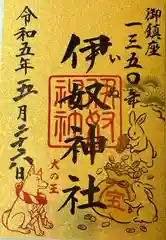 御鎮座
一三五〇年
伊奴神社
いぬ
令和五年五月二十六日
犬の王